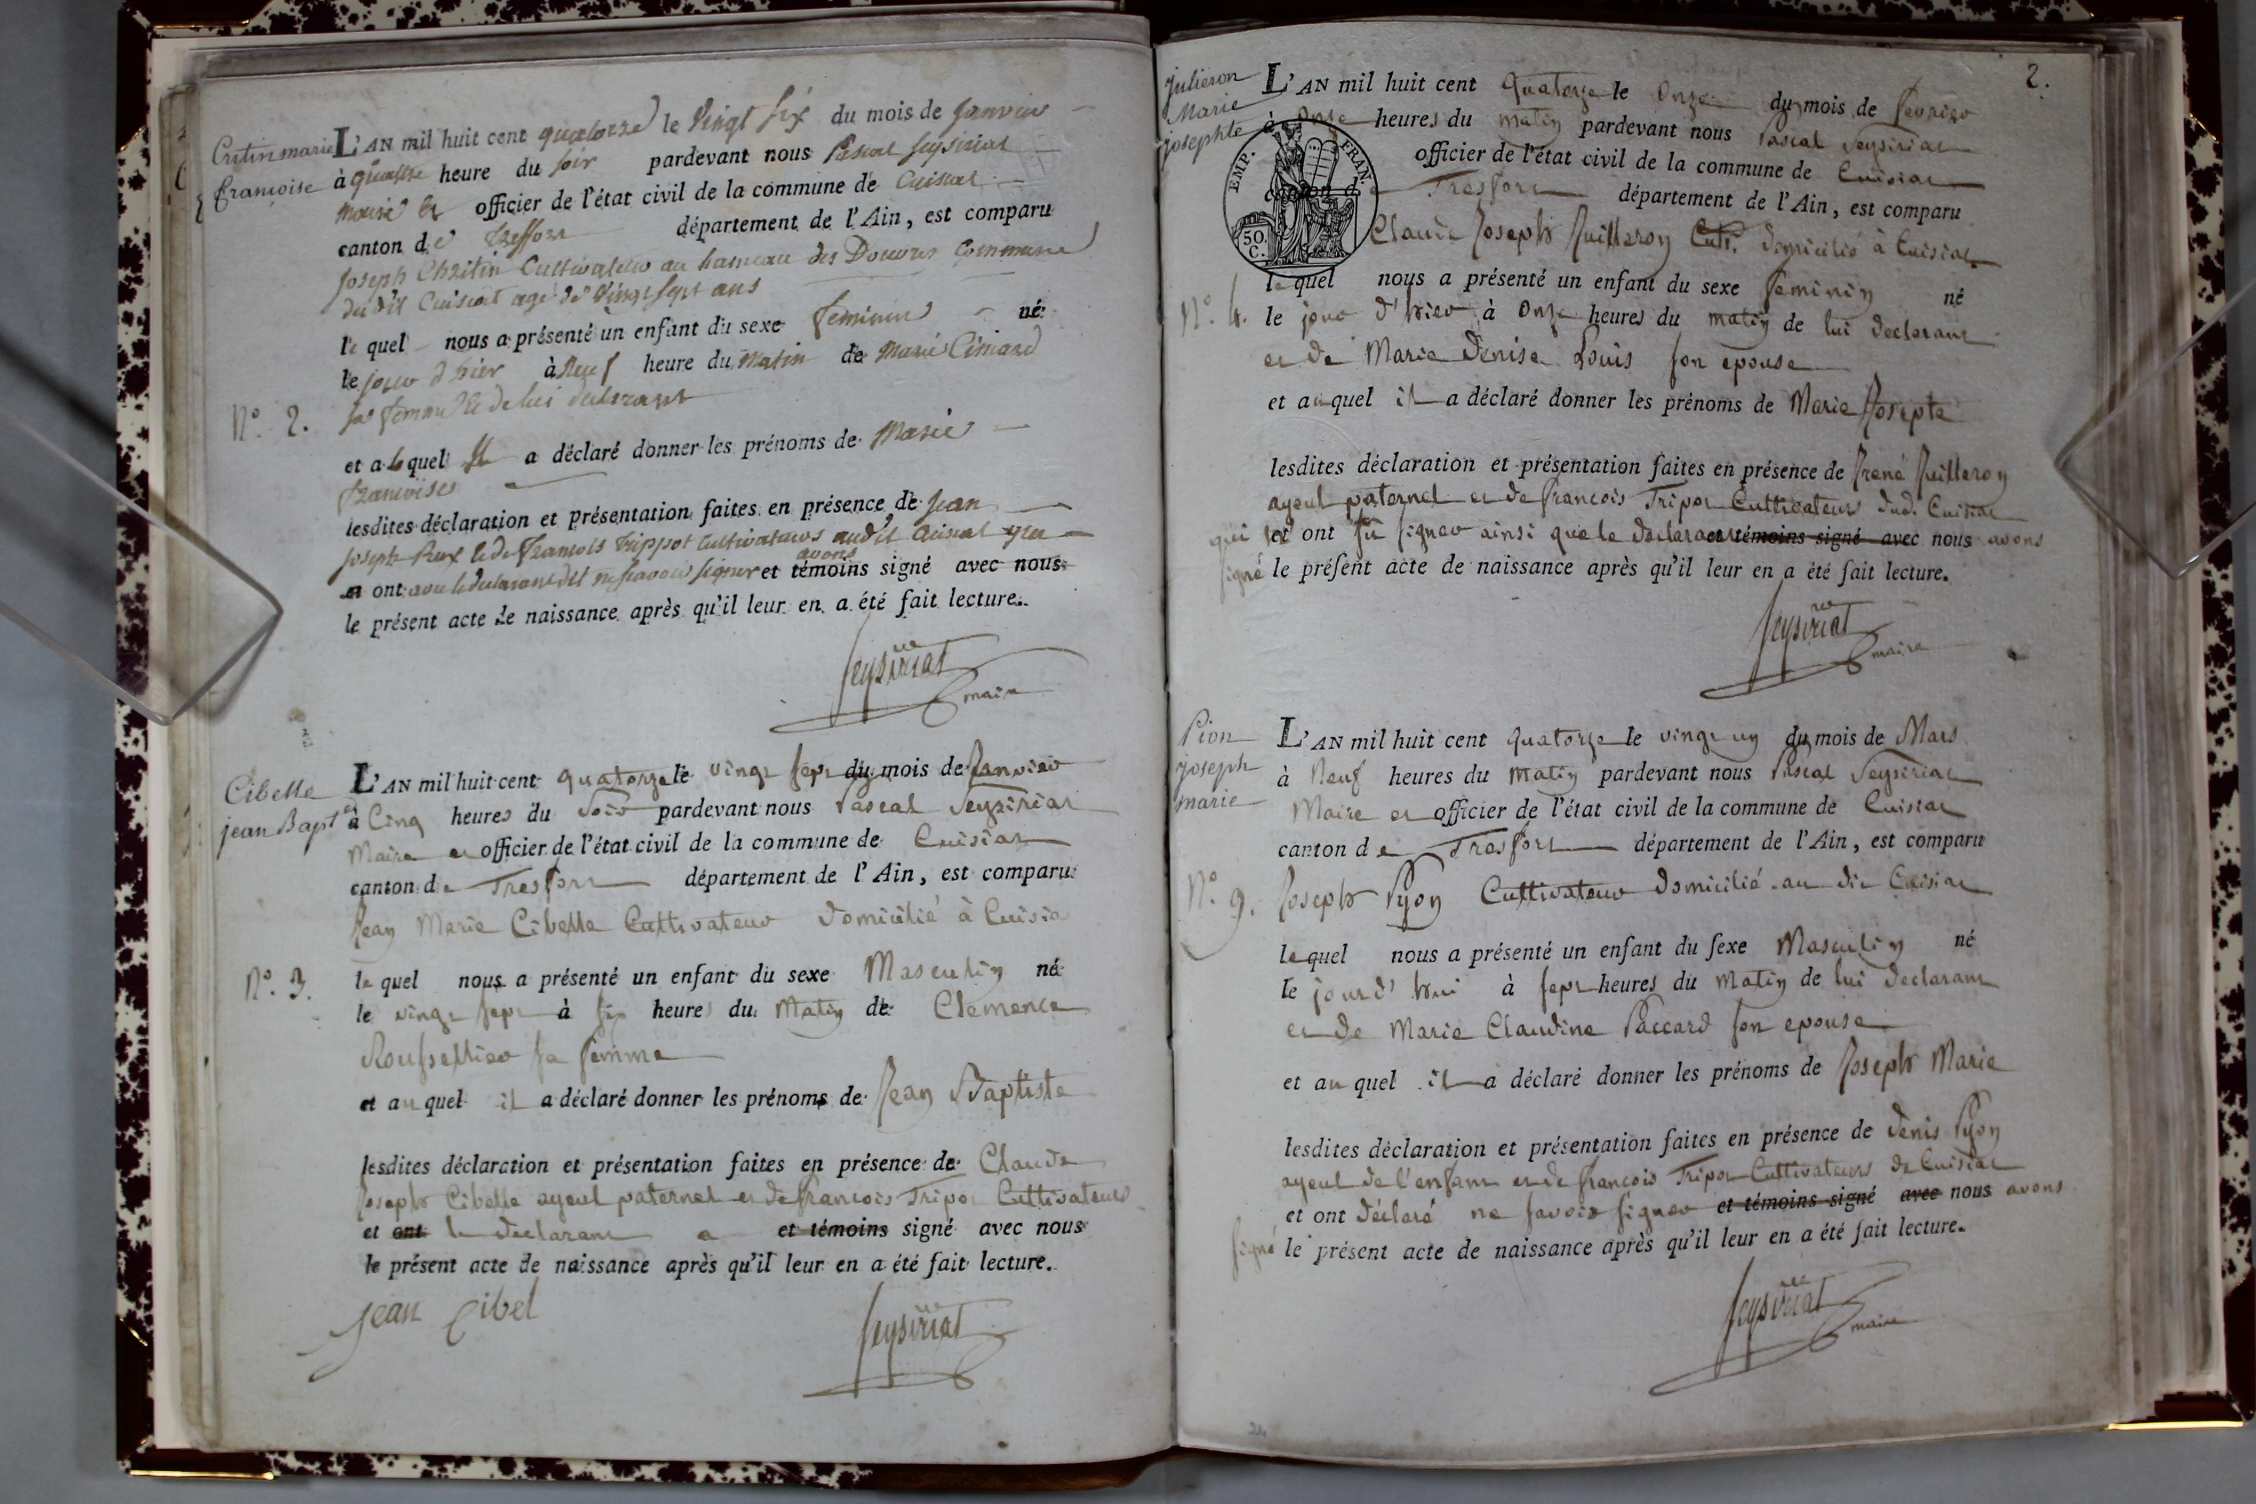 Critin marie
françoise
L'AN mil huit cent quatorze le vingt six du mois de Janvier
à quattre heure du soir pardevant nous Pascal Seysiriat
maire et officier de l'état civil de la commune de Cuisiat
canton de Treffort département de l'Ain, est comparu
Joseph Chritin Cultivateur au hameau des Douvres Commune
dudit Cuisiat agé de vingt sept ans
le quel nous a présenté un enfant du sexe feminin né
le jour d'hier à Neuf heure du Matin de Marie
sa femme et de lui declarant
N.° 2.
et a le quel Il a déclaré donner les prénoms de Marie
françoise
lesdites déclaration et présentation faites en présence de Jean
Joseph Rux et de François Trippot Cultivateurs audit Cuisiat
avons
ont avec le declarant dit ne sçavoir signer et témoins signé avec nous
le présent acte de naissance après qu'il leur en a été fait lecture.
Seysiriat
maire
Cibelle
jean Bapt.
L'AN mil huit cent quatorze le vingt sept du mois de Janvier
à Cinq heures du Soir pardevant nous Pascal Seysiriat
Maire et officier de l'état civil de la commune de Cuisiat
canton de Tresfort département de l'Ain, est comparu
Jean Marie Cibelle Cultivateur domicilié à Cuisia
N.° 3.
le quel nous a présenté un enfant du sexe Masculin né
le vingt sept à six heures du Matin de Clemence
Rousselier sa femme
et au quel il a déclaré donner les prénoms de Jean Baptiste
lesdites déclaration et présentation faites en présence de Claude
Joseph Cibelle ayeul paternel et de francois Tripot Cultivateurs
et ont le declarant a et témoins signé avec nous
le présent acte de naissance après qu'il leur en a été fait lecture.
jean Cibel
Seysiriat
2.
Julieron
Marie
josephte
L'AN mil huit cent quatorze le Onze du mois de fevrier
à Onze heures du matin pardevant nous Pascal Seysiriat
officier de l'état civil de la commune de Cuisiat
EMP. FRAN.
50. C.
canton de Tresfort département de l'Ain, est comparu
Claude Joseph Juilleron Cult. domicilié à Cuisiat
le quel nous a présenté un enfant du sexe feminin né
N.° 4.
le jour d'hier à Onze heures du matin de lui declarant
et de Marie Denise Louis son epouse
et au quel il a déclaré donner les prénoms de Marie Josepte
lesdites déclaration et présentation faites en présence de René Juilleron
ayeul paternel et de francois Tripot Cultivateurs dud. Cuisiat
qui ont signer ainsi que le declarant et témoins signé avec nous avons
signé le présent acte de naissance après qu'il leur en a été fait lecture.
Seysiriat
maire
Pion
joseph
marie
L'AN mil huit cent quatorze le vingt un du mois de Mars
à Neuf heures du matin pardevant nous Pascal Seysiriat
Maire et officier de l'état civil de la commune de Cuisiat
canton de Tresfort département de l'Ain, est comparu
N.° 9.
Joseph Pyon Cultivateur domicilié au dit Cuisiat
le quel nous a présenté un enfant du sexe Masculin né
le jourd'hui à sept heures du Matin de lui declarant
et de Marie Claudine Paccard son epouse
et au quel il a déclaré donner les prénoms de Joseph Marie
lesdites déclaration et présentation faites en présence de Denis Pyon
ayeul de l'enfant et de francois Tripot Cultivateurs de Cuisiat
et ont déclaré ne savoir signer et témoins signé avec nous avons
signé le présent acte de naissance après qu'il leur en a été fait lecture.
Seysiriat
maire